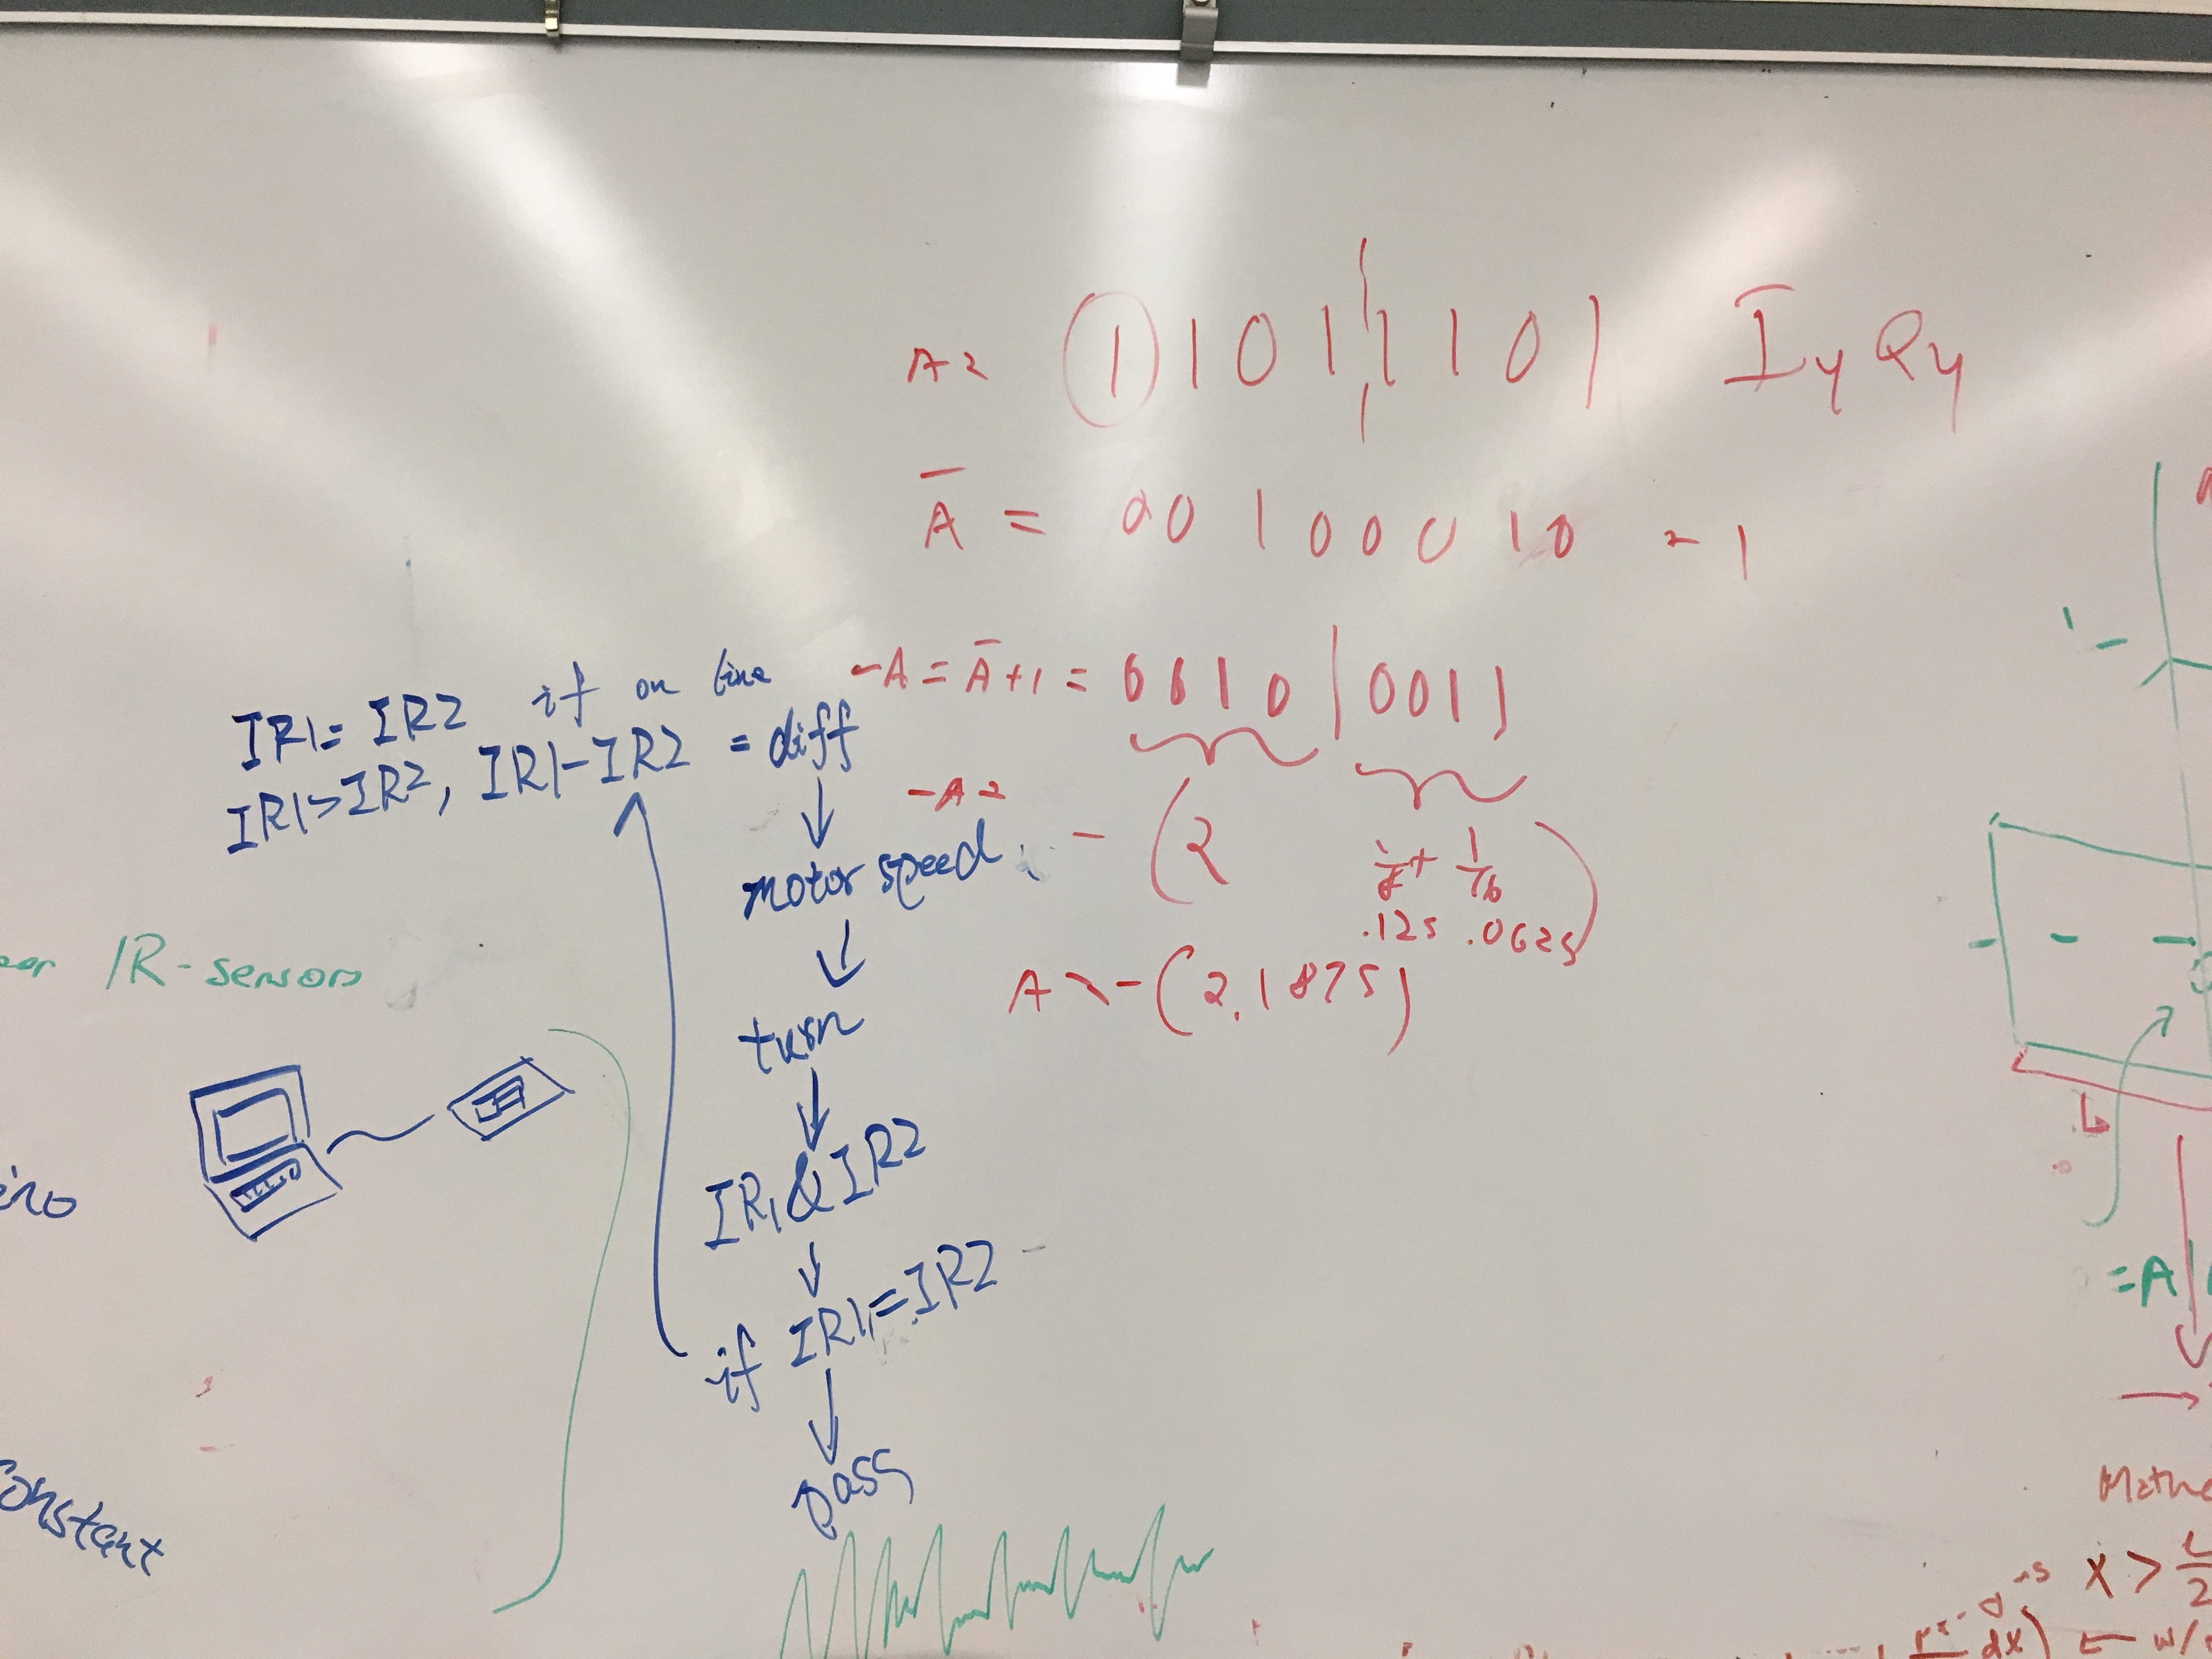 A = 1101 1101 I4Q4
A̅ = 00100010 - 1
-A = A̅+1 = 0010 | 0011
-A =
- (2 1/8 + 1/16)
.125 .0625
A = -(2.1875)
IR1= IR2 if on line
IR1>IR2, IR1-IR2 = diff
motor speed
turn
IR1&IR2
if IR1=IR2
pass
IR-sensors
onstant
= A
Mathe
X > L/2
dx) ← w/